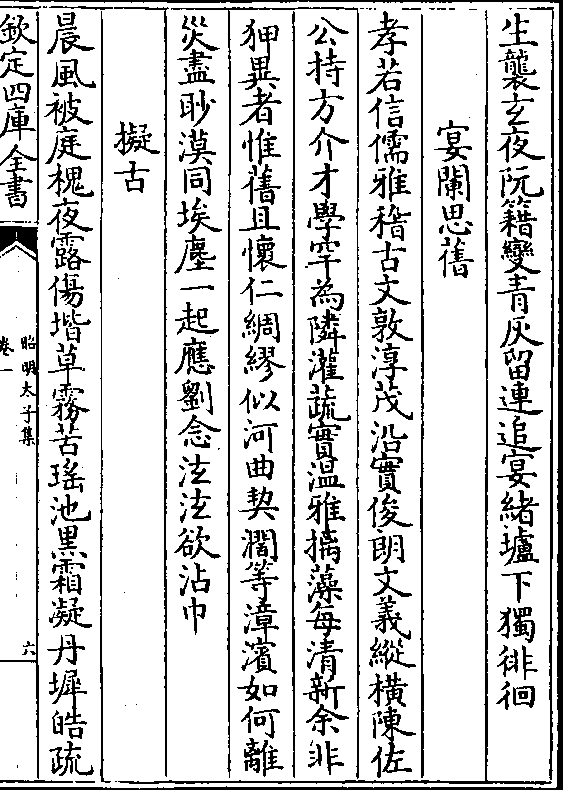 生襲玄夜阮籍變青灰留連追宴緒壚下獨徘徊
宴闌思舊
孝若信儒雅稽古文敦淳茂沿實俊朗文義縱橫陳佐
公持方介才學罕為隣灌蔬實温雅摛藻每清新余非
狎異者惟舊且懐仁綢繆似河曲契濶等漳濱如何離
災盡眇漠同埃塵一起應劉念泫泫欲沾巾
擬古
晨風被庭槐夜露傷堦草霧苦瑶池黒霜凝丹墀皓疏
欽定四庫全書
昭明太子集
卷一
六